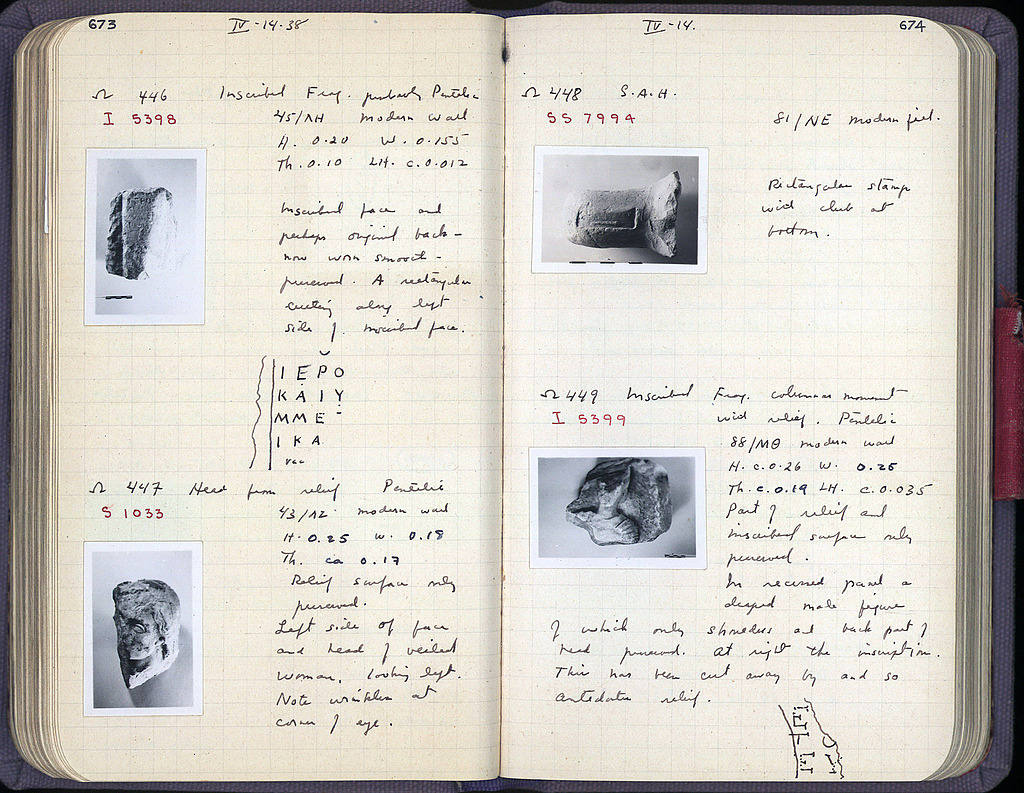 673
IV-14-38
Ω 446 Inscribed Frag. probably Pentelic
I 5398
45/ΛΗ modern wall
H. 0.20 W. 0.155
Th. 0.10 LH. c. 0.012
Inscribed face and
perhaps original back –
now worn smooth –
preserved. A rectangular
cutting along left
side of inscribed face.
ΙΕΡΟ
ΚΑΙΥ
ΜΜΕ
ΙΚΑ
vac
Ω 447 Head from relief Pentelic
S 1033
modern wall
H. 0.25 W. 0.18
Th. ca 0.17
Relief surface only
preserved.
Left side of face
and head of veiled
woman, looking left.
Note wrinkles at
corner of eye.
IV-14.
674
Ω 448 S.A.H.
SS 7994
81/NE modern fill.
Rectangular stamp
with club at
bottom.
Ω 449 Inscribed Frag. columnar monument
I 5399
with relief. Pentelic
88/ΜΘ modern wall
H. c. 0.26 W. 0.25
Th. c. 0.19 LH. c. 0.035
Part of relief and
inscribed surface only
preserved.
In recessed panel a
draped male figure
of which only shoulders and back part of
head preserved. At right the inscription.
This has been cut away by and so
antedates relief.